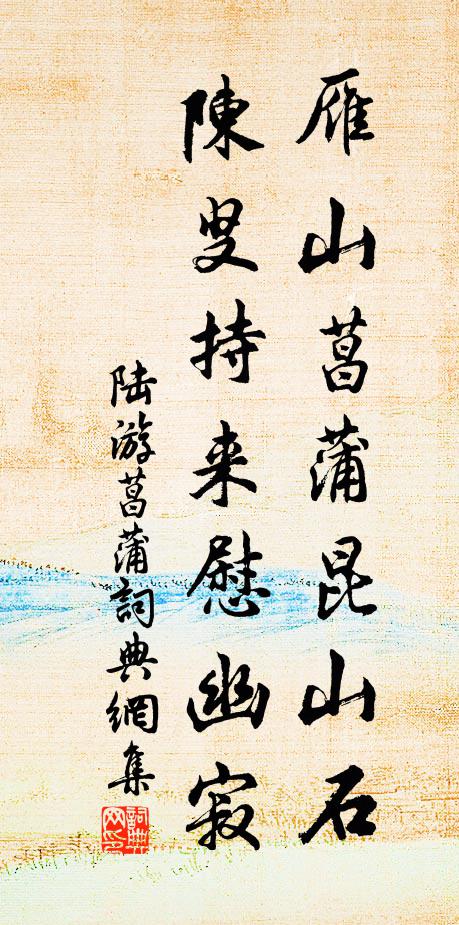 雁山菖蒲昆山石
陳叟持来慰幽寂
陆游菖蒲詞典網集